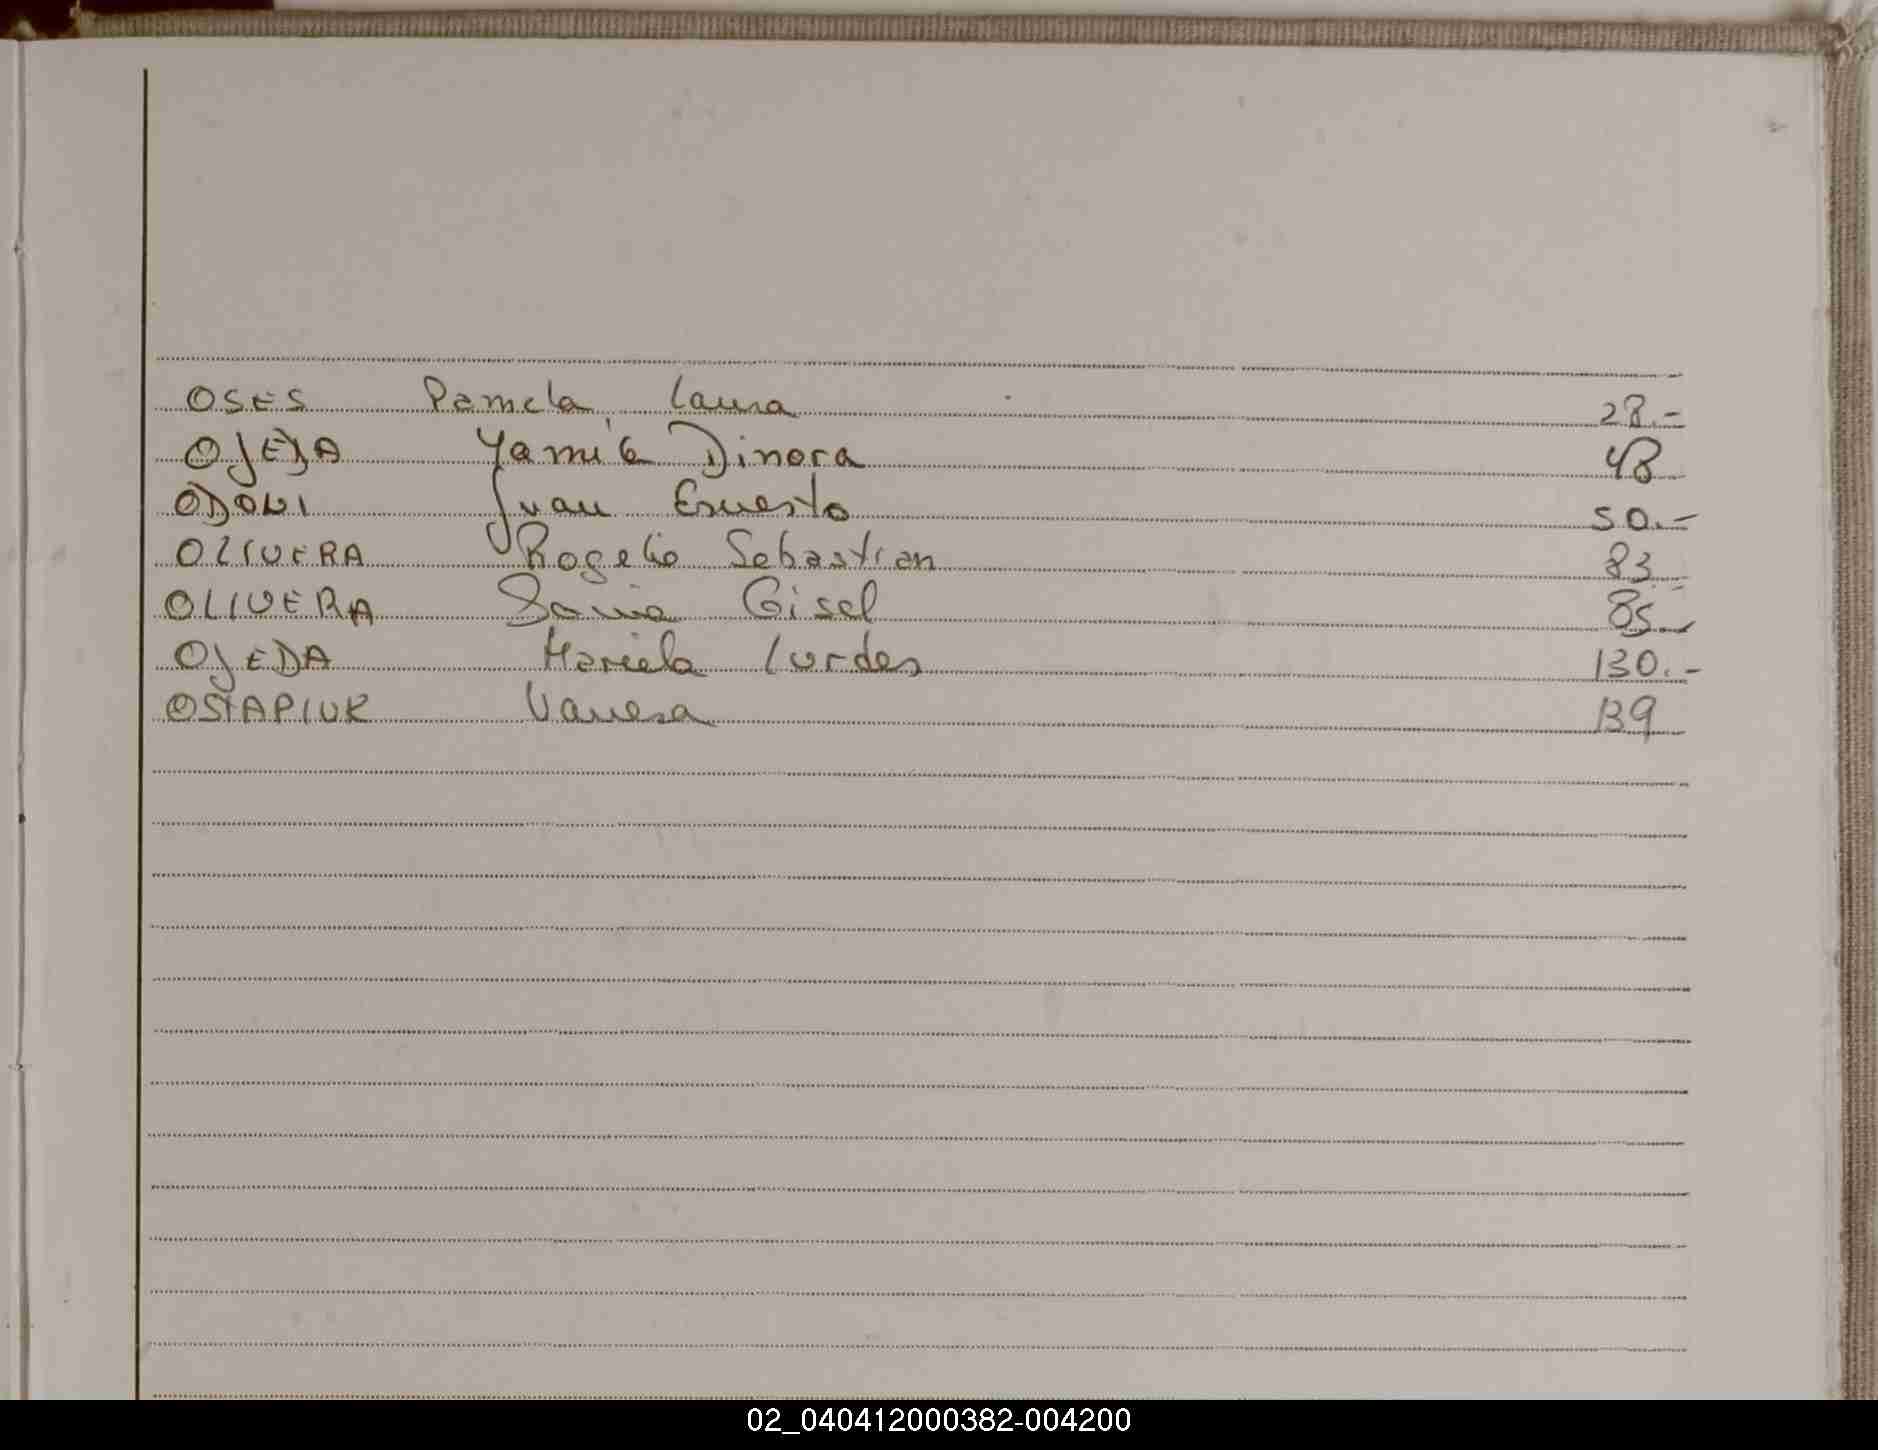 OSES Pamela Laura 28.-
OJEDA Yamila Dinora 48
ODONI Juan Ernesto 50.-
OLIVERA Rogelio Sebastian 83
OLIVERA Sonia Gisel 85
OJEDA Mariela Lurdes 130.-
OSTAPIUK Vanesa 139
02_040412000382-004200